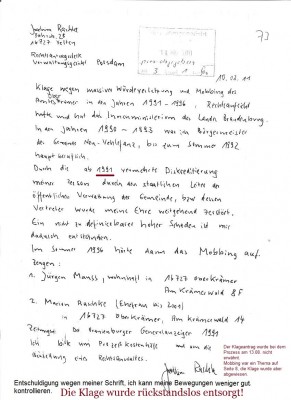 Bahnstr. 28
16727 Velten
73
Rechtsantragstelle
Verwaltungsgericht Potsdam
10.03.11
Klage wegen massiver Würdeverletzung und Mobbing des
Amtes Krämer in den Jahren 1991 - 1996, Rechtsaufsicht
hatte und hat das Innenministerium des Landes Brandenburg.
In den Jahren 1990 - 1993 war ich Bürgermeister
der Gemeinde Neu-Vehlefanz, bis zum Sommer 1992
hauptberuflich.
Durch die ab 1991 vermehrte Diskreditierung
meiner Person durch den staatlichen Leiter der
öffentlichen Verwaltung der Gemeinde, bzw dessen
Vertreter wurde meine Ehre weitgehend zerstört.
Ein nicht zu definierbarer hoher Schaden ist mir
dadurch entstanden.
Im Sommer 1996 hörte dann das Mobbing auf.
Zeugen:
1. Jürgen Manss, wohnhaft in 16727 Oberkrämer
Am Krämerswald 8F
2. Marion (Ehefrau bis 2001)
in 16727 Oberkrämer, Am Krämerwald 14
Zeitungs Brandenburger Generalanzeiger 1991
Ich bitte um Prozeßkostenhilfe und um die
eines Rechtsanwaltes.
Der Klageantrag wurde bei dem
Prozess am 13.08. nicht
erwähnt.
Mobbing war ein Thema auf
Seite 8, die Klage wurde aber
abgewiesen.
Entschuldigung wegen meiner Schrift, ich kann meine Bewegungen weniger gut
kontrollieren.
Die Klage wurde rückstandslos entsorgt!